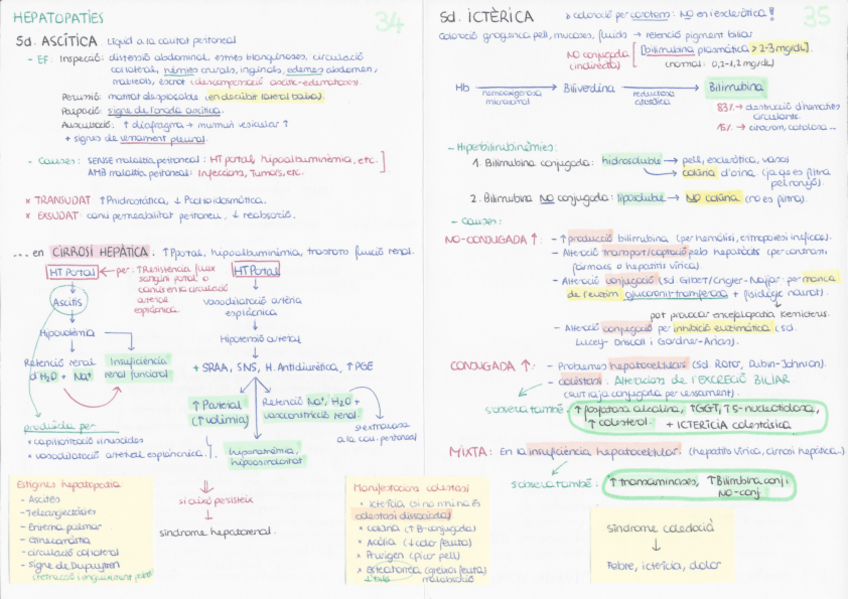 HEPATOPATIES
34
Sd. ASCÍTICA Líquid a la cavitat peritoneal
- EF: Inspecció: distensió abdominal, estries blanquinoses, circulació
col·lateral, hèrnies crurals, inguinals, edemes abdomen,
maleols, escrot (descompensació ascite-edematosa).
Percussió: matitat desplaçable (en decúbit lateral baixa).
Palpació: signe de l'onada ascítica.
Auscultació: ↑ diafragma → murmuri vesicular ↑
+ signes de vessament pleural.
- Causes: SENSE malaltia peritoneal: HT portal, hipoalbuminèmia, etc.
AMB malaltia peritoneal: Infeccions, Tumors, etc.
× TRANSUDAT ↑Phidrostàtica, ↓ Pcol·loidosmòtica.
× EXSUDAT: canvi permeabilitat peritoneu, ↓ reabsorció.
... en CIRROSI HEPÀTICA. ↑Pportal, hipoalbuminèmia, trastorn funció renal.
HT Portal ← per: ↑Resistència flux
sanguini portal o
canvis en la circulació
arterial
esplàcnica.
Ascitis
Hipovolèmia
Retenció renal
d'H2O + Na+
Insuficiència
renal funcional
produïda per
× capil·larització sinusoides
× vasodilatació arterial esplàcnica.
HT Portal
vasodilatació artèria
esplàcnica
Hipotensió arterial
+ SRAA, SNS, H. Antidiürètica, ↑PGE
↑ Parcial
(↑volèmia)
Retenció Na+, H2O +
vasoconstricció renal.
s'extravasa
a la cav. peritoneal
hiponatrèmia,
hipoosmolaritat
si això persisteix
síndrome hepatorenal.
Estigmes hepatopatia
- Ascites
- Telangiectàsies
- Eritema palmar
- Ginecomàstia
- circulació col·lateral
- signe de Dupuytren
Manifestacions colèstasi
× Ictericia (si no mínima és
colèstasi dissociada)
× colúria (↑B-conjugada)
× Acòlia (↓color femta)
× Pruïgen (picor pell)
× Esteatorrea (greixos femta)
35
Sd. ICTÈRICA
> coloració per carotens: NO en l'escleròtica!
Coloració groguenca pell, mucoses, fluids → retenció pigment biliar
[bilirubina plasmàtica > 2-3 mg/dL].
NO conjugada
(indirecta)
(normal: 0,2-1,2 mg/dL)
Hb → Biliverdina → Bilirubina
hemooxigenasa
microsomal
reductasa
citosòlica
83% → destrucció d'hematies
circulants.
15% → citocrom, catalasa...
- Hiperbilirubinèmies:
1. Bilirubina conjugada: hidrosoluble → pell, escleròtica, vasos
colúria d'orina (ja que es filtra
pel ronyó).
2. Bilirubina NO conjugada: liposoluble → NO colúria (no es filtra).
- Causes:
NO-CONJUGADA ↑: - ↑producció bilirubina (per hemòlisi, eritropoesi ineficaç).
- Alteració transport/captació pels hepatòcits (per contrasts,
fàrmacs o hepatitis vírica).
- Alteració conjugació (sd. Gilbert/Crigler-Najjar: per manca
de l'enzim glucuronil transferasa + fisiològic nounat).
pot provocar encefalopatia Kernicterus.
- Alteració conjugació per inhibició enzimàtica (sd.
Lucey-Driscoll i Gardner-Arias).
CONJUGADA ↑: - Problemes hepatocel·lulars (Sd. Rotor, Dubin-Johnson).
- colèstasi: Alteracions de l'EXCRECIÓ BILIAR
(surt ja conjugada per vessament).
s'observa també: ↑ fosfatasa alcalina, ↑GGT, ↑5-nucleotidasa,
↑ colesterol. + ICTERÍCIA colestàsica
MIXTA: En la insuficiència hepatocel·lular. (hepatitis vírica, cirrosi hepàtica..)
s'observa també: ↑ transaminases, ↑Bilirubina conj i
NO-conj.
síndrome coledocià
↓
Febre, icterícia, dolor